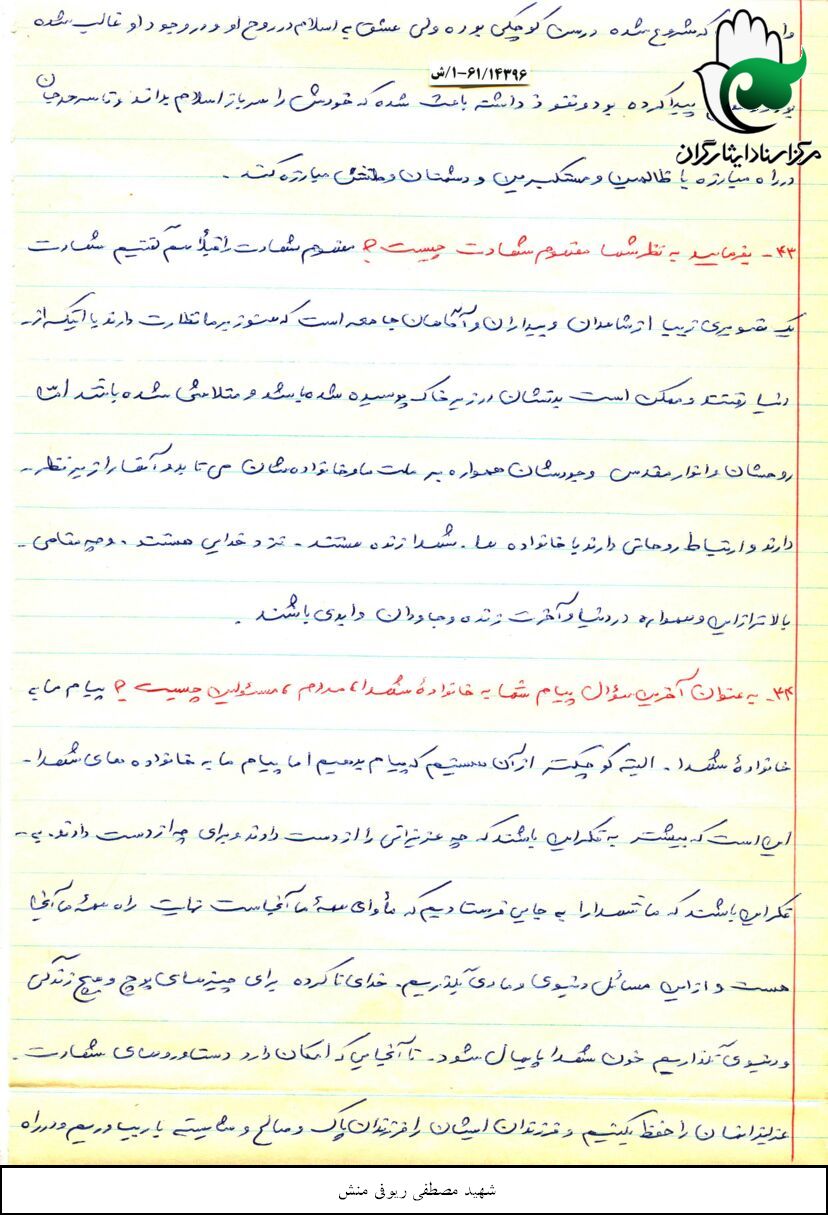 که شروع شده در سن کوچکی بوده ولی عشق به اسلام در روح او و در وجود او غالب شده
۱-۶۱/۱۴۳۹۶/ش
پیدا کرده بود و نفوذ داشته باعث شده که خودش را سرباز اسلام بداند و تا سرحد جان
مرکز اسناد ایثارگران
در راه مبارزه با ظالمین و مستکبرین و دشمنان وطنش مبارزه کند.
۴۳- بفرمایید به نظر شما مفهوم شهادت چیست؟ مفهوم شهادت را قبلاً هم گفتیم شهادت
یک تصویری زیبا از شاهدان و بیداران و آگاهان جامعه است که هنوز بر ما نظارت دارند با اینکه از
دنیا رفتند و ممکن است بدنشان در زیر خاک پوسیده شده باشد و متلاشی شده باشد اما
روحشان و انوار مقدس وجودشان همواره بر ملت ما و خانواده شان می تابد و آنها را زیر نظر
دارند و ارتباط روحانی دارند با خانواده ها. شهدا زنده هستند - نزد خدایی هستند. و چه مقامی
بالاتر از این و همواره در دنیا و آخرت زنده و جاودان و ابدی باشند.
۴۴- به عنوان آخرین سؤال پیام شما به خانوادهٔ شهدا، مردم، مسئولین چیست؟ پیام ما به
خانوادهٔ شهدا. البته کوچکتر از آن هستیم که پیام بدهیم اما پیام ما به خانواده های شهدا
این است که بیشتر به فکر این باشند که چه عزیزانی را از دست دادند و برای چه از دست دادند. به
فکر این باشند که ما شهدا را به جایی فرستادیم که مأوای همهٔ ما آنجاست نهایت راه همهٔ ما آنجا
هست و از این مسائل دنیوی و مادی بگذریم. خدای نا کرده برای چیزهای پوچ و هیچ زندگی
دنیوی نگذاریم خون شهدا پایمال شود. تا آنجایی که امکان دارد دستاوردهای شهادت
عزیزانمان را حفظ بکنیم و فرزندان ایشان را فرزندان پاک و صالح و شایسته بار بیاوریم و در راه
شهید مصطفی ریوفی منش